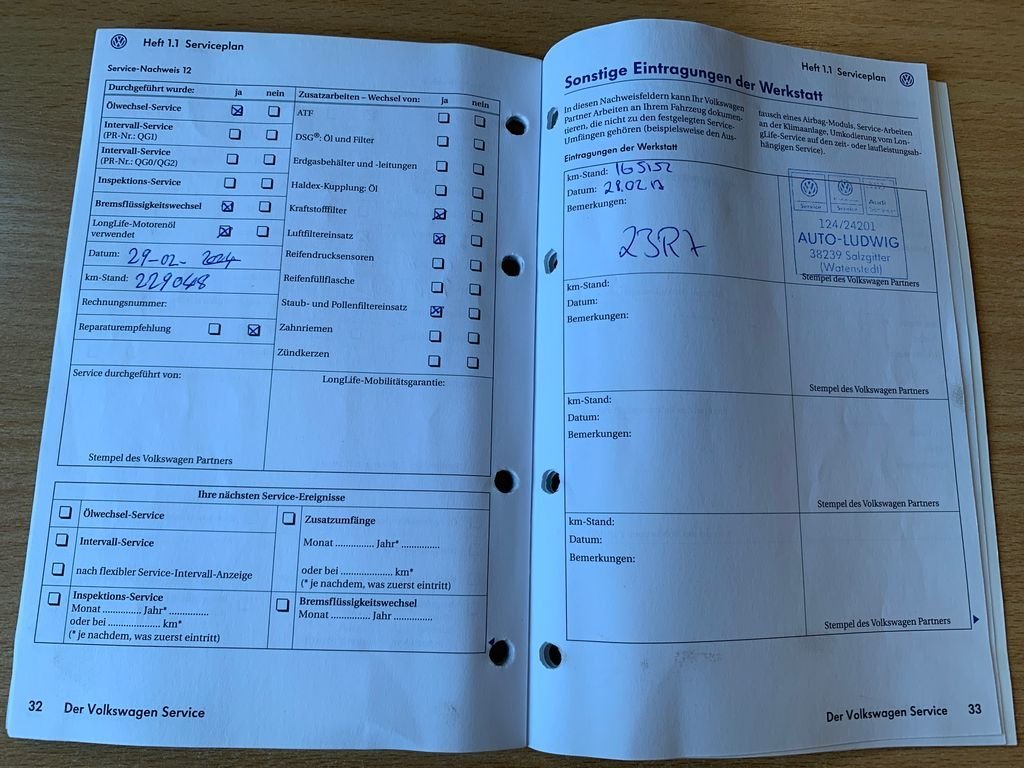 Heft 1.1 Serviceplan
Service-Nachweis 12
Durchgeführt wurde: ja nein
Ölwechsel-Service
Intervall-Service
(PR-Nr.: QG1)
Intervall-Service
(PR-Nr.: QG0/QG2)
Inspektions-Service
Bremsflüssigkeitswechsel
LongLife-Motorenöl
verwendet
Datum: 29-02-2024
km-Stand: 229048
Rechnungsnummer:
Reparaturempfehlung
Zusatzarbeiten – Wechsel von: ja nein
ATF
DSG®: Öl und Filter
Erdgasbehälter und -leitungen
Haldex-Kupplung: Öl
Kraftstofffilter
Luftfiltereinsatz
Reifendrucksensoren
Reifenfüllflasche
Staub- und Pollenfiltereinsatz
Zahnriemen
Zündkerzen
Service durchgeführt von:
Stempel des Volkswagen Partners
LongLife-Mobilitätsgarantie:
Ihre nächsten Service-Ereignisse
Ölwechsel-Service
Intervall-Service
nach flexibler Service-Intervall-Anzeige
Inspektions-Service
Monat ............... Jahr* ...............
oder bei .................... km*
(* je nachdem, was zuerst eintritt)
Zusatzumfänge
Monat ............... Jahr* ...............
oder bei .................... km*
(* je nachdem, was zuerst eintritt)
Bremsflüssigkeitswechsel
Monat ............... Jahr ...............
32 Der Volkswagen Service
Heft 1.1 Serviceplan
Sonstige Eintragungen der Werkstatt
In diesen Nachweisfeldern kann Ihr Volkswagen
Partner Arbeiten an Ihrem Fahrzeug dokumen-
tieren, die nicht zu den festgelegten Service-
Umfängen gehören (beispielsweise den Aus-
tausch eines Airbag-Moduls, Service-Arbeiten
an der Klimaanlage, Umkodierung vom Lon-
gLife-Service auf den zeit- oder laufleistungsab-
hängigen Service).
Eintragungen der Werkstatt
km-Stand: 165152
Datum: 28.02
Bemerkungen:
23R7
Service Service Audi
124/24201
AUTO-LUDWIG
38239 Salzgitter
(Watenstedt)
Stempel des Volkswagen Partners
km-Stand:
Datum:
Bemerkungen:
Stempel des Volkswagen Partners
km-Stand:
Datum:
Bemerkungen:
Stempel des Volkswagen Partners
km-Stand:
Datum:
Bemerkungen:
Stempel des Volkswagen Partners
Der Volkswagen Service 33